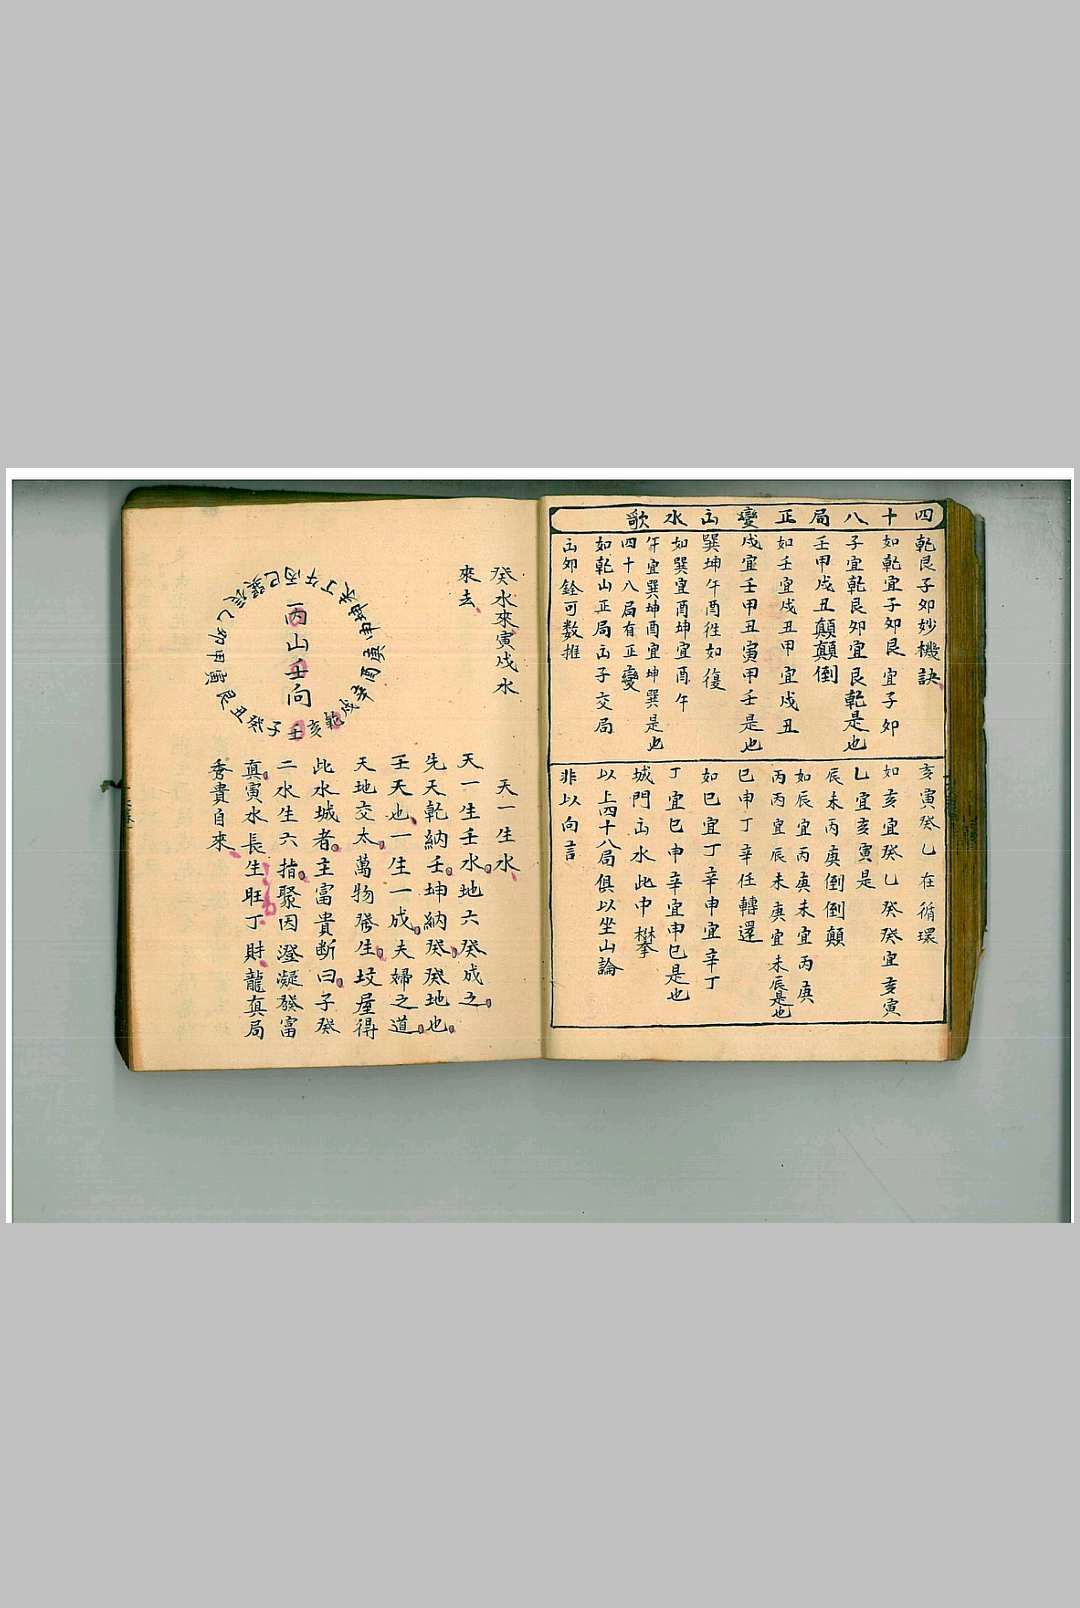 四十八局正變山水歌
乾艮子卯妙機訣
如乾宜子卯艮宜子卯
子宜乾艮卯宜艮乾是也
壬甲戌丑顛顛倒
如壬宜戌丑甲宜戌丑
戌宜壬甲丑寅甲壬是也
巽坤午酉徃如復
如巽宜酉坤宜酉午
午宜巽坤酉宜坤巽是也
四十八局有正變
如乾山正局山子交局
山卯銓可数推
亥寅癸乙在循環
如亥宜癸乙癸癸宜亥寅
乙宜亥寅是
辰未丙庚倒倒顛
如辰宜丙庚未宜丙庚
丙丙宜辰未庚宜未辰是也
巳申丁辛任轉還
如巳宜丁辛申宜辛丁
丁宜巳申辛宜申巳是也
城門山水此中攀
以上四十八局俱以坐山論
非以向言
癸水來寅戌水
來去
丙山壬向
壬子癸丑艮寅甲卯乙辰巽巳丙午丁未坤申庚酉辛戌乾亥
天一生水
天一生壬水地六癸成之
先天乾納壬坤納癸癸地也
壬天也一生一成夫婦之道
天地交太萬物發生坟屋得
此水城者主富貴断曰子癸
二水生六指聚因澄凝發富
真寅水長生旺丁財龍真局
秀貴自來